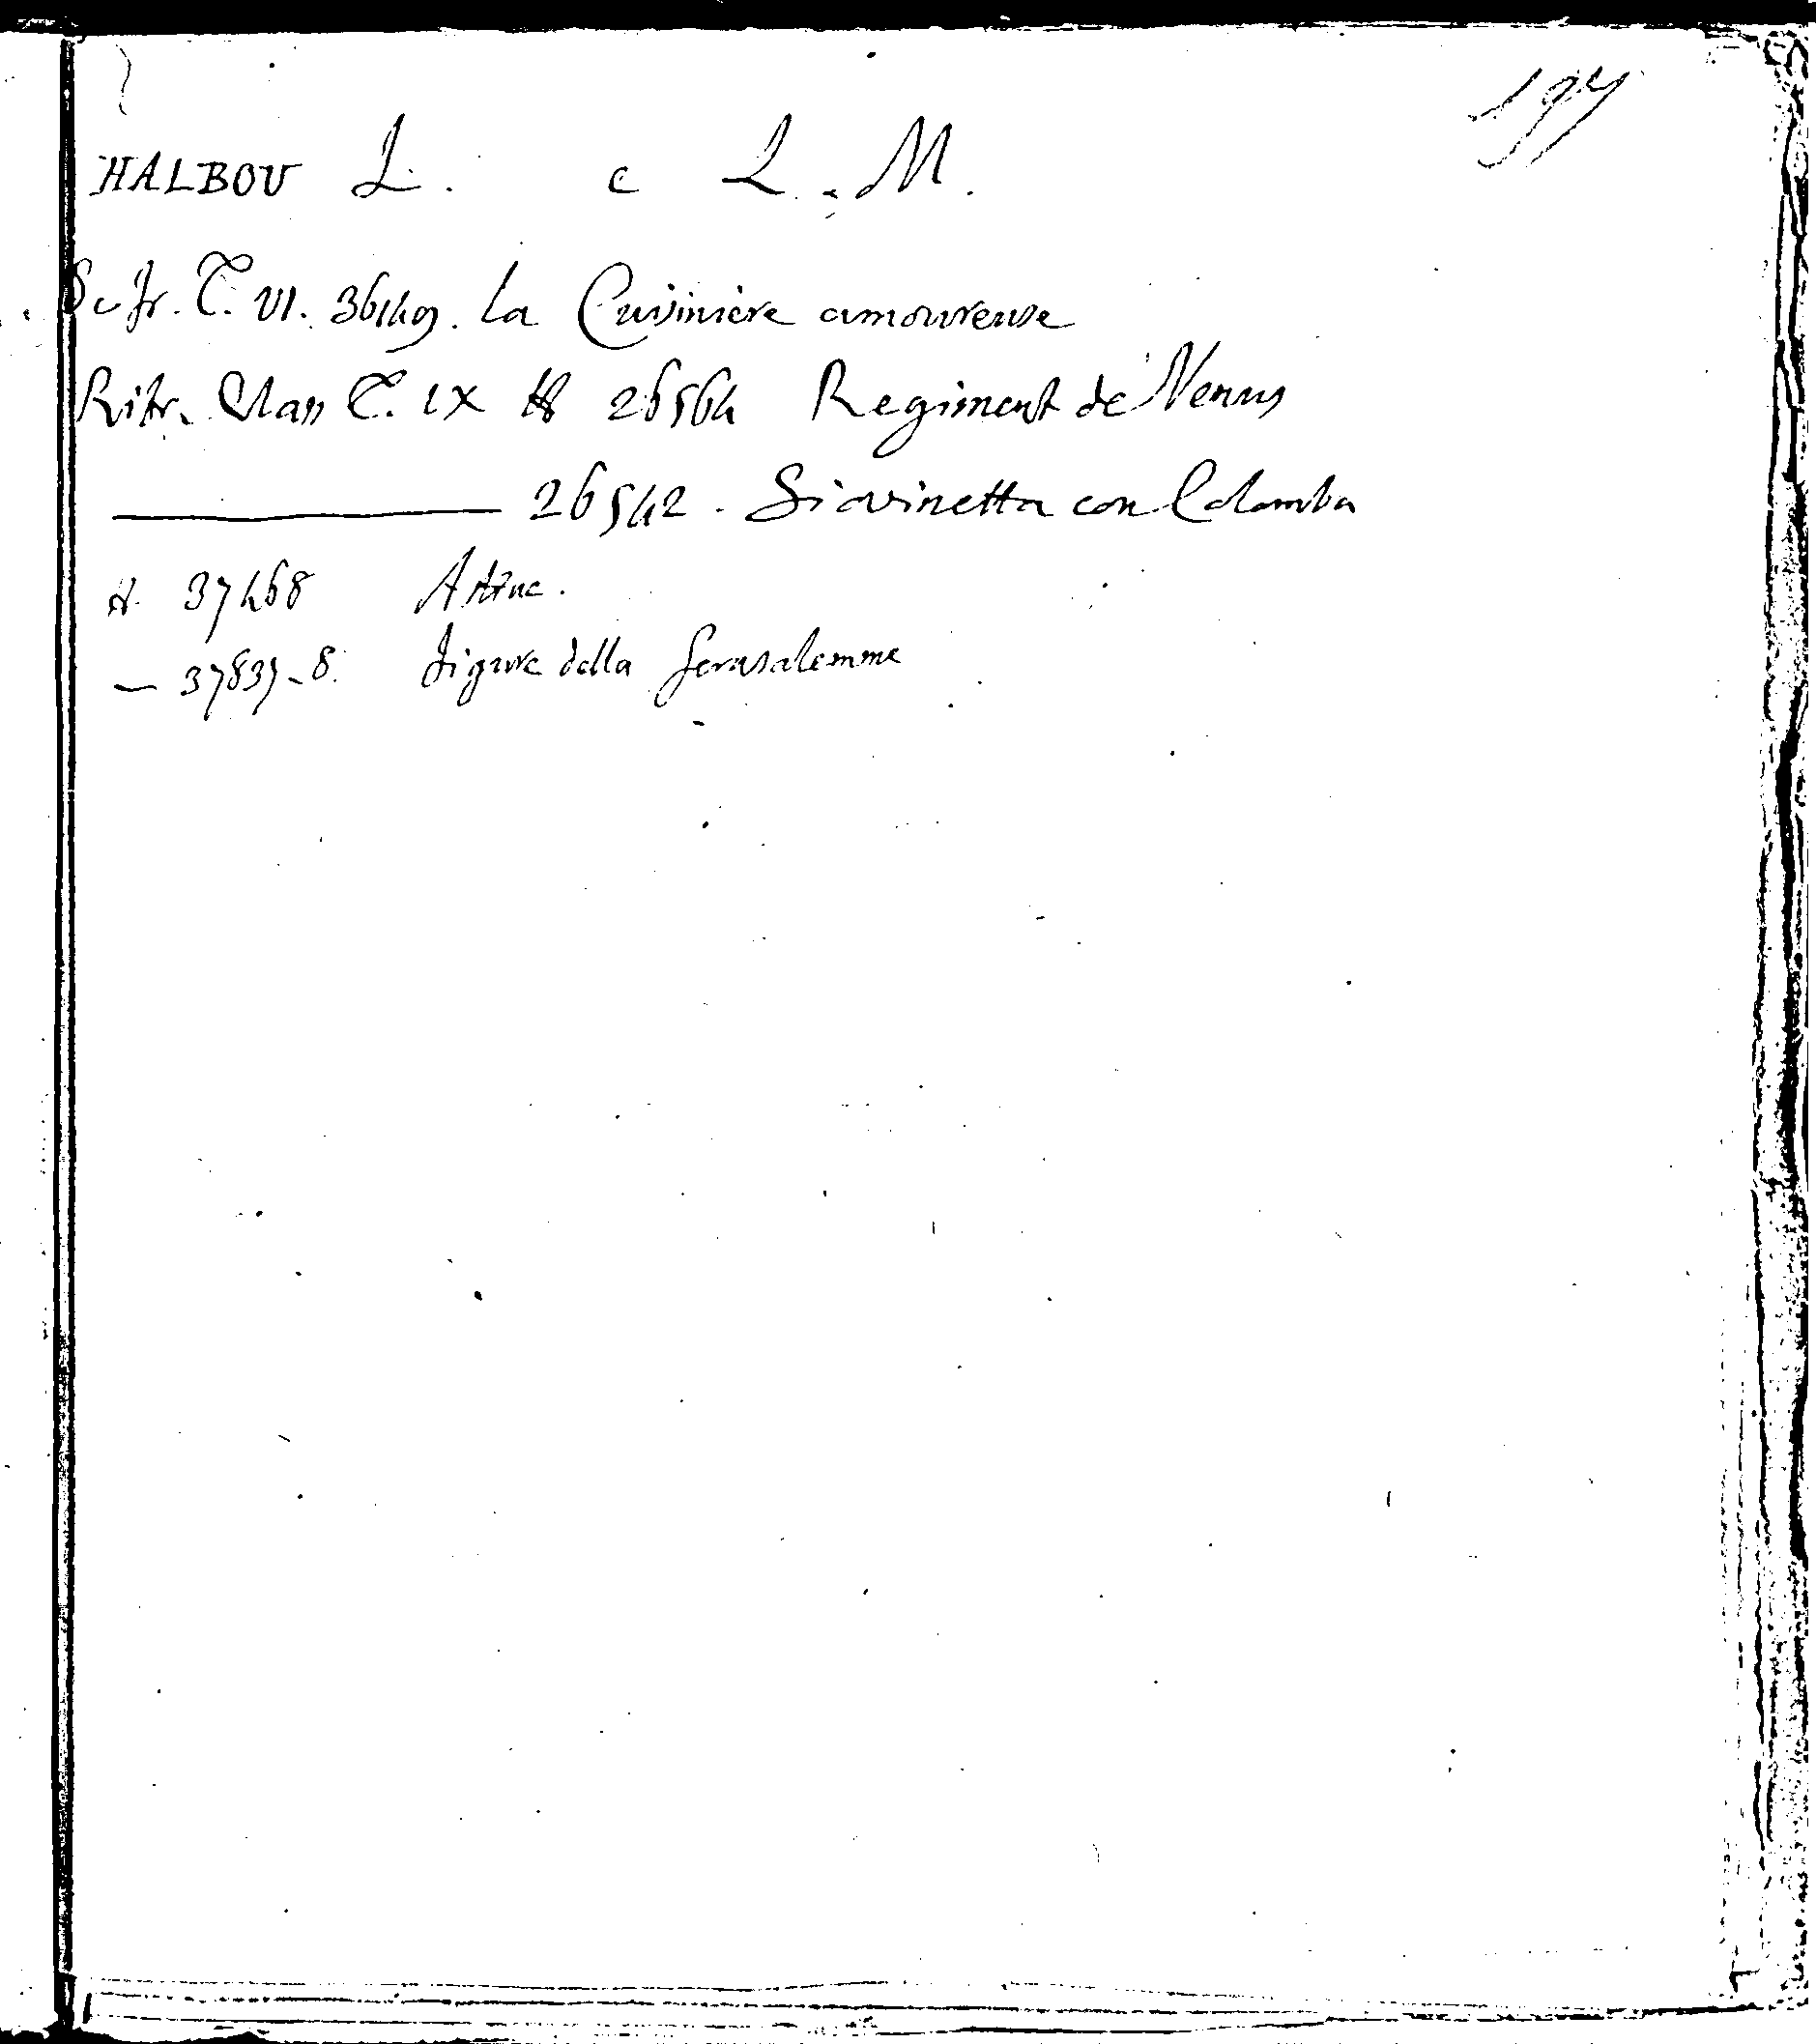 197
HALBOU L. e L. M.
Sc fr. T. VI. 36149. La Cuisiniere amoureuse
Ritr. Class T. IX # 26564 Regiment de Venus
26542. Giovinetta con Colomba
# 37468 Astruc.
— 37837-8. figure della Gerusalemme